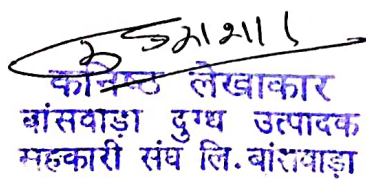 कनिष्ठ लेखाकार
बांसवाड़ा दुग्ध उत्पादक
सहकारी संघ लि. बांसवाड़ा